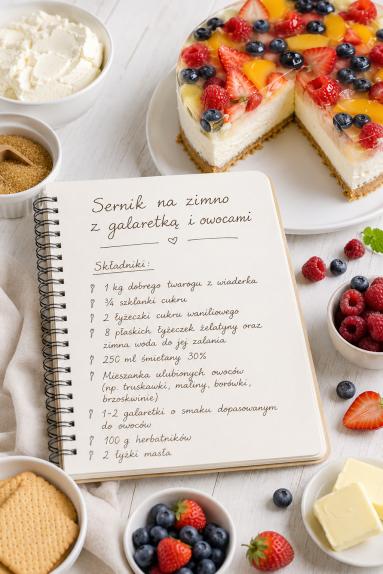 Sernik na zimno
z galaretką i owocami
Składniki:
1 kg dobrego twarogu z wiaderka
¾ szklanki cukru
2 łyżeczki cukru waniliowego
8 płaskich łyżeczek żelatyny oraz
zimna woda do jej zalania
250 ml śmietany 30%
Mieszanka ulubionych owoców
(np. truskawki, maliny, borówki,
brzoskwinie)
1-2 galaretki o smaku dopasowanym
do owoców
100 g herbatników
2 łyżki masła